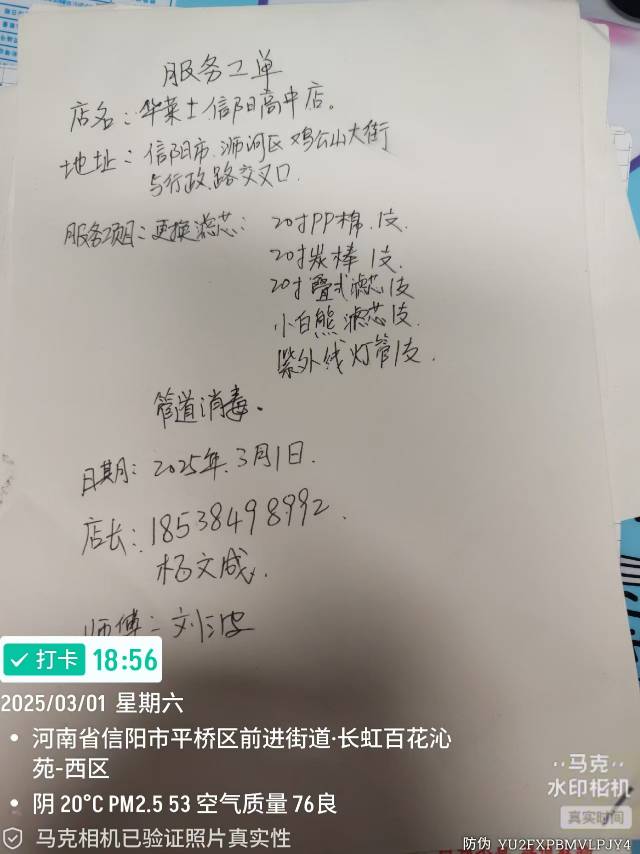 服务工单
店名：华莱士信阳高中店。
地址：信阳市浉河区鸡公山大街
与行政路交叉口.
服务项目：更换滤芯：20寸PP棉.1支.
20寸炭棒 1支.
20寸叠式滤芯1支
小白熊滤芯1支.
紫外线灯管1支.
管道消毒.
日期：2025年.3月1日.
店长：18538498992.
杨文成.
师傅：刘波
打卡 18:56
2025/03/01 星期六
河南省信阳市平桥区前进街道·长虹百花沁
苑-西区
阴 20°C PM2.5 53 空气质量 76良
马克相机已验证照片真实性
马克
水印相机
真实时间
防伪 YU2FXPBMVLPJY4